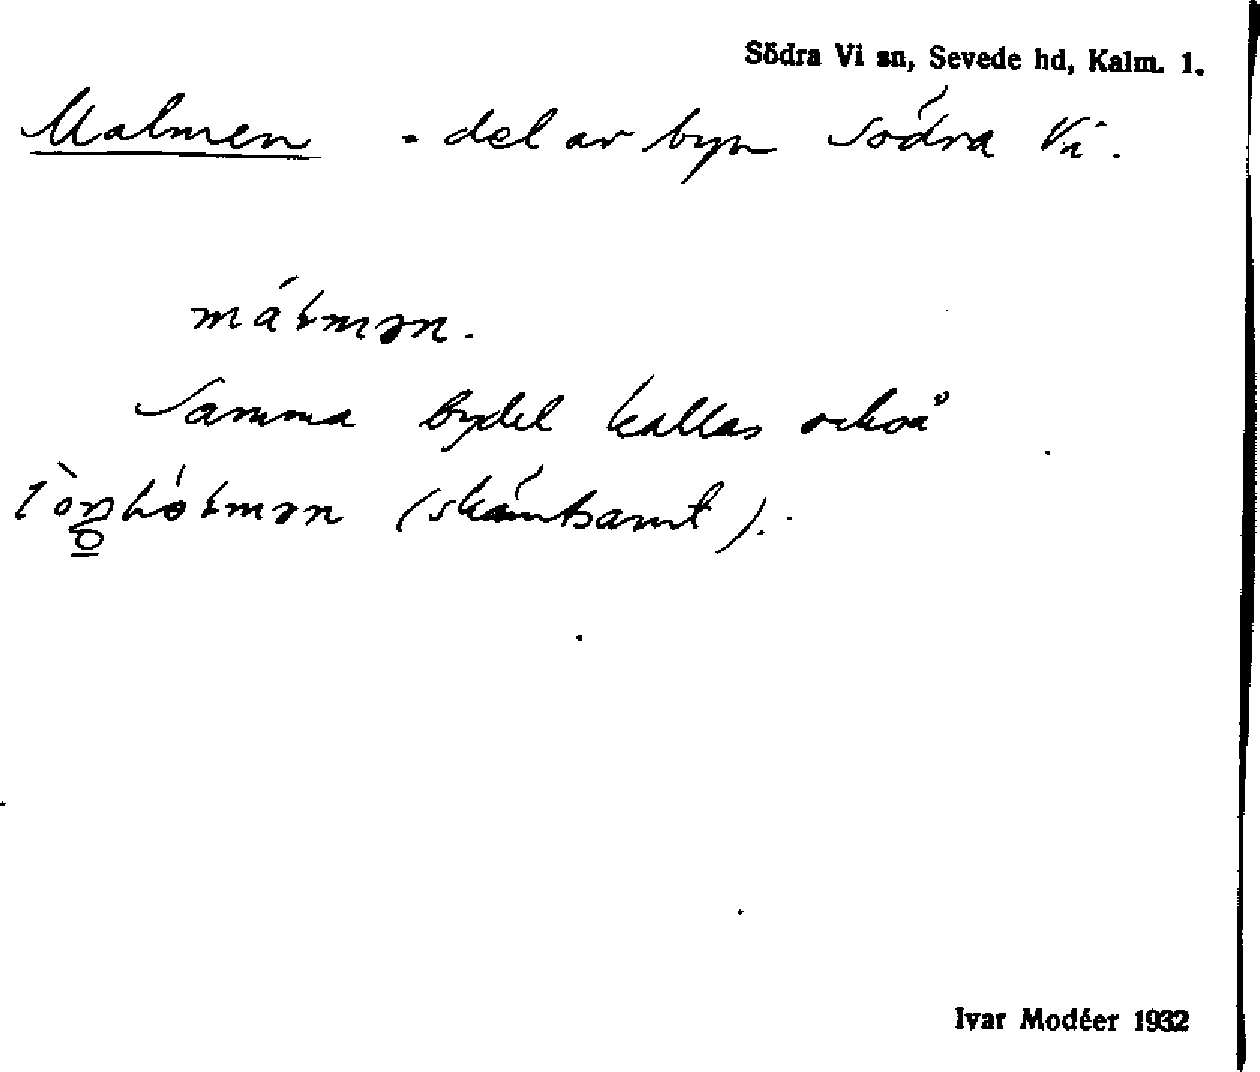 Södra Vi sn, Sevede hd, Kalm. l.
Malmen - del av byn Södra Vi.
málmən.
Samma bydel kallas också
(skämtsamt).
Ivar Modéer 1932